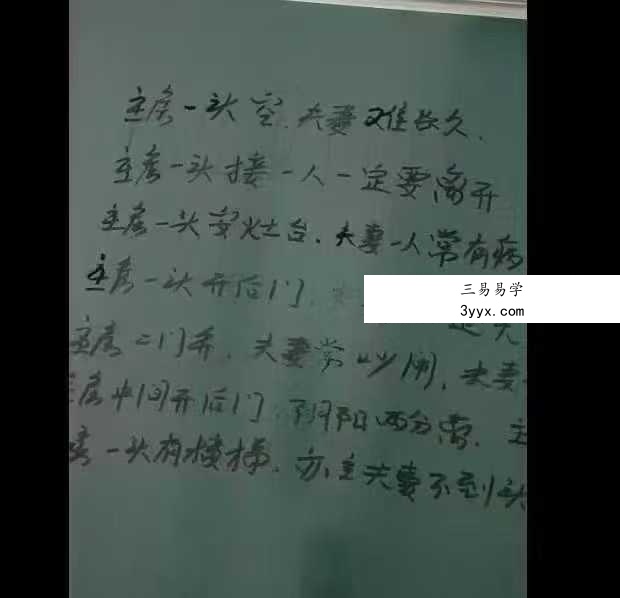 主房一头空.夫妻难长久、
主房一头接一人一定要离开
主房一头安灶台.夫妻一人常有病
主房一头开后门.
三易易学
3yyx.com
主房二门弄.夫妻常吵闹.夫妻
房中间开后门.阴阳两分离.主
房一头有楼梯.亦主夫妻不到头